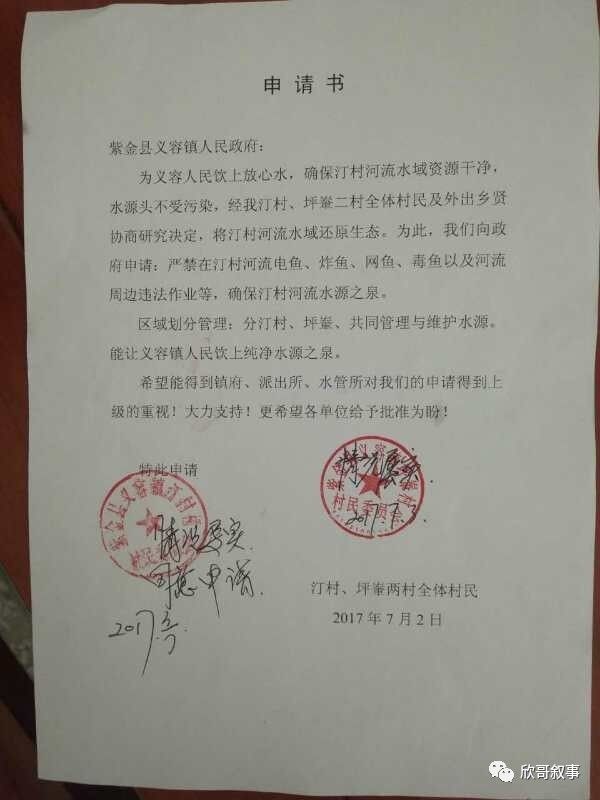 申请书
紫金县义容镇人民政府：
为义容人民饮上放心水，确保汀村河流水域资源干净，
水源头不受污染，经我汀村、坪輋二村全体村民及外出乡贤
协商研究决定，将汀村河流水域还原生态。为此，我们向政
府申请：严禁在汀村河流电鱼、炸鱼、网鱼、毒鱼以及河流
周边违法作业等，确保汀村河流水源之泉。
区域划分管理：分汀村、坪輋、共同管理与维护水源。
能让义容镇人民饮上纯净水源之泉。
希望能得到镇府、派出所、水管所对我们的申请得到上
级的重视！大力支持！更希望各单位给予批准为盼！
特此申请
紫金县义容镇汀村
村民委员会
情况属实
同意申请
2017
情况属实
村民委员会
2017.7.3
汀村、坪輋两村全体村民
2017年7月2日
欣哥叙事